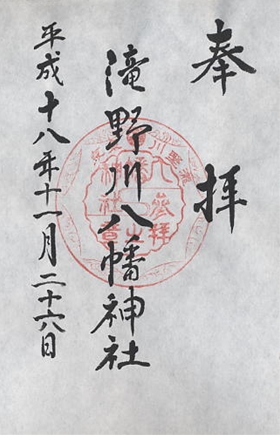 奉拝
滝野川八幡神社
平成十八年十一月二十六日